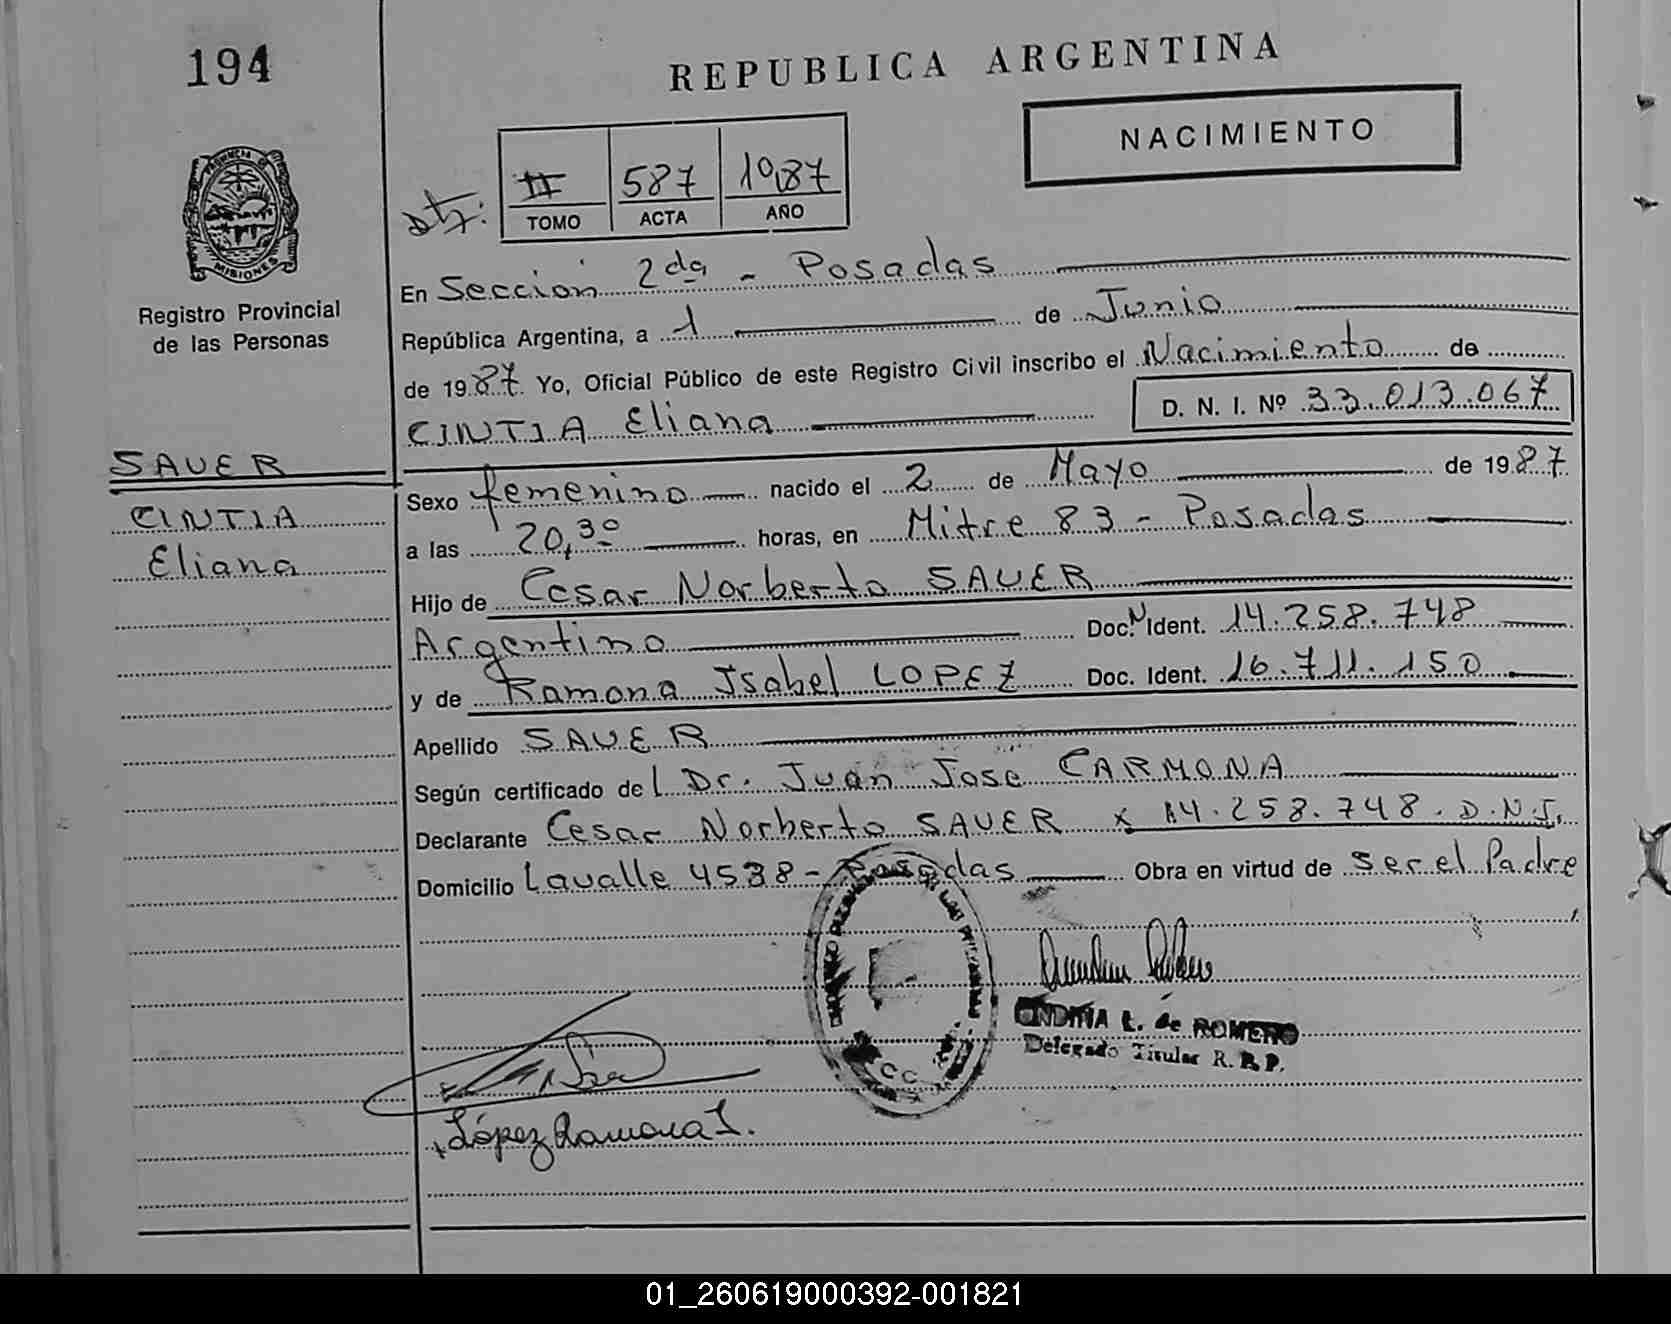 194
REPUBLICA ARGENTINA
NACIMIENTO
II 587 1987
TOMO ACTA AÑO
PROVINCIA DE
MISIONES
Registro Provincial
de las Personas
En Sección 2da - Posadas
República Argentina, a 1 de Junio
de 1987. Yo, Oficial Público de este Registro Civil inscribo el Nacimiento de
CINTIA Eliana D. N. I. Nº 33.013.067
SAUER
CINTIA
Eliana
Sexo femenino nacido el 2 de Mayo de 1987
a las 20,30 horas, en Mitre 83 - Posadas
Hijo de Cesar Norberto SAUER
Argentino Doc. N Ident. 14.258.748
y de Ramona Isabel LOPEZ Doc. Ident. 16.711.150
Apellido SAUER
Según certificado de l Dr. Juan Jose CARMONA
Declarante Cesar Norberto SAUER x 14.258.748. D.N.I.
Domicilio Lavalle 4538 - Posadas Obra en virtud de ser el Padre
L. de ROMERO
Delegado Titular R. P.
López Ramona I.
01_260619000392-001821